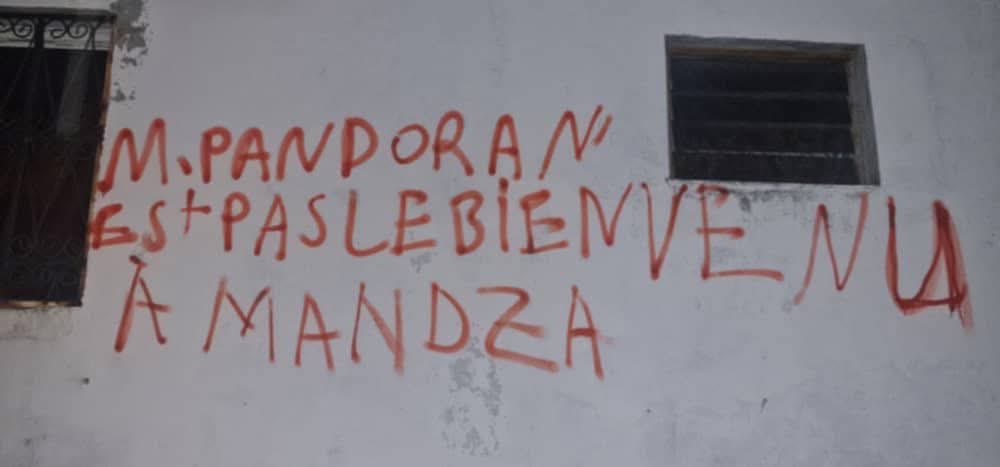 M. PANDORA N'
EST PAS LE BIENVENU
À MANDZA